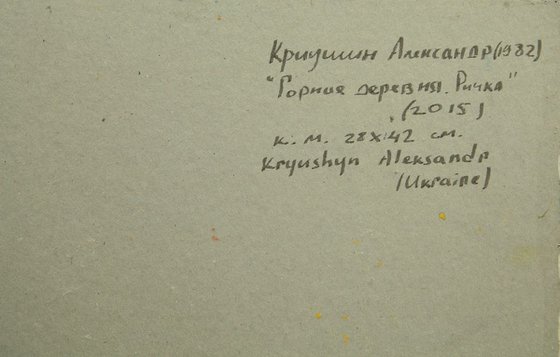 Криушин Александр (1982)
"Горная деревня. Ричка"
(2015)
к. м. 28x42 см.
Kryushyn Aleksandr
(Ukraine)